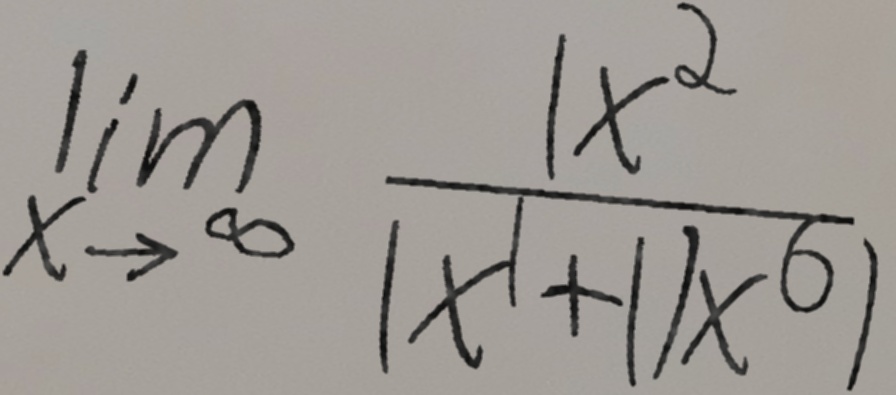 \lim_{x \to \infty} \frac{1x^2}{1x^1 + 11x^6}